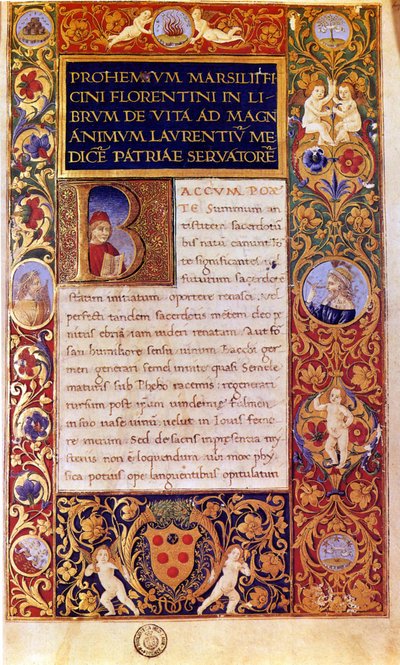 PROHEMIVM MARSILII FI
CINI FLORENTINI IN LI
BRVM DE VITA AD MAGN
ANIMVM LAVRENTIŪ ME
DICĒ PATRIAE SERVATORĒ
BACCVM POE
TE Summum an
tistitem sacerdotū
bis natū canunt fo
te significantes vel
futurum sacerdotē
statim initiatum oportere renasci. vel
perfecti tandem sacerdotis mētem deo pe
nitus ebriā iam videri renatam. Aut for
san humiliore sensu vinum Bacchi ger
men generari semel in vite quasi Semele
maturis sub Phebo racemis: regenerari
rursum post vindemie fulmen
in suo vase vinū: velut in Iovis femo
re merum. Sed de sacris in presentia my
steriis non est loquendum. ubi mox phy
sica potius ope languentibus opitulatum